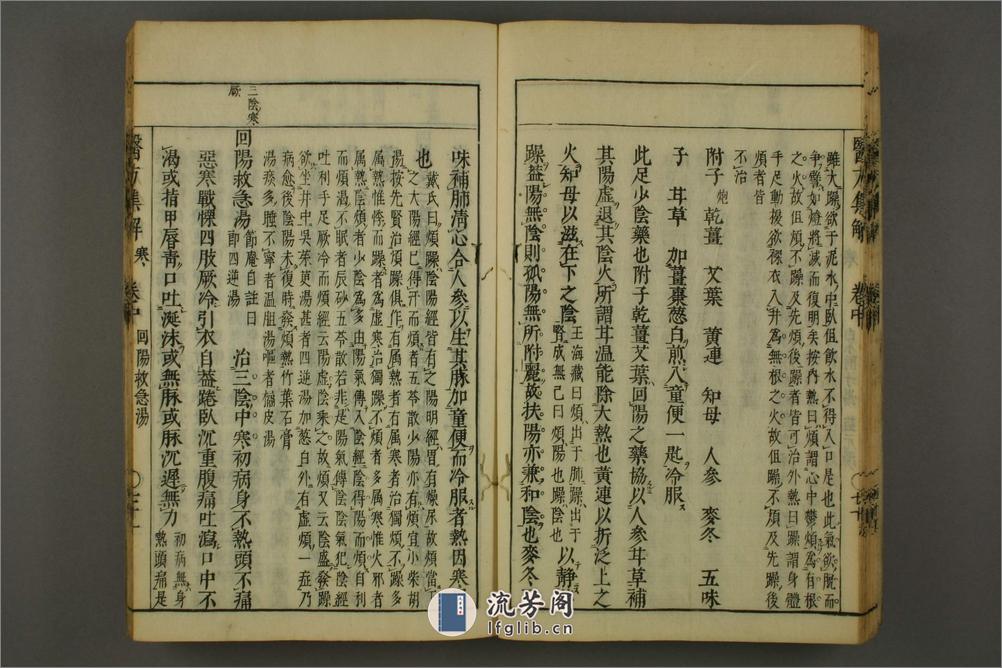 醫方集解
卷中
雖大躁欲于泥水中臥但飲水不得入口是也此氣欲脫而
爭譬如燈將滅而復明矣按內熱曰煩謂心中鬱煩為有根
之火故但煩不躁及先煩後躁者皆可治外熱曰躁謂身體
手足動擾欲裸衣入井為無根之火故但躁不煩及先躁後
煩者皆
不治
附子炮 乾薑 艾葉 黃連 知母 人參 麥冬 五味
子 甘草 加薑棗蔥白煎入童便一匙冷服
此足少陰藥也附子乾薑艾葉回陽之藥協以人參甘草補
其陽虛退其陰火所謂甘溫能除大熱也黃連以折泛上之
火知母以滋在下之陰王海藏曰煩出于肺躁出于腎成無己曰煩陽也躁陰也以靜
躁蓋陽無陰則孤陽無所附麗故扶陽亦兼和陰也麥冬
味補肺清心合人參以生其脈加童便而冷服者熱因寒
也戴氏曰煩躁陰陽經皆有之陽明經胃有燥屎故煩當
之太陽經已得汗而煩者五苓散少陽亦有煩宜小柴胡
湯按先賢治煩躁俱作有屬熱者有屬寒者治獨煩不躁多
屬熱惟悸而躁者為虛寒治獨躁不煩者多屬寒惟火邪者
屬熱陰煩者少陰為多由陽氣傳入陰經陰得陽而煩自
而煩渴不眠者辰砂五苓散若非是陽氣傳陰陰氣犯陰經
吐利手足厥冷而煩經云陽虛陰乘之故煩又云陰盛發躁
欲坐井中吳茱萸湯甚者四逆湯加蔥白外有虛煩一症乃
病愈後陰陽未復時發煩熱竹葉石膏
湯痰多睡不寧者溫膽湯嘔者橘皮湯
三陰寒
厥
回陽救急湯節庵自註曰即四逆湯 治三陰中寒初病身不熱頭不痛
惡寒戰慄四肢厥冷引衣自蓋踡臥沉重腹痛吐瀉口中不
渴或指甲唇青口吐涎沫或無脉或脉沉遲無力初病無身熱頭痛是
醫方集解 寒 卷中 回陽救急湯
流芳阁
lfglib.cn